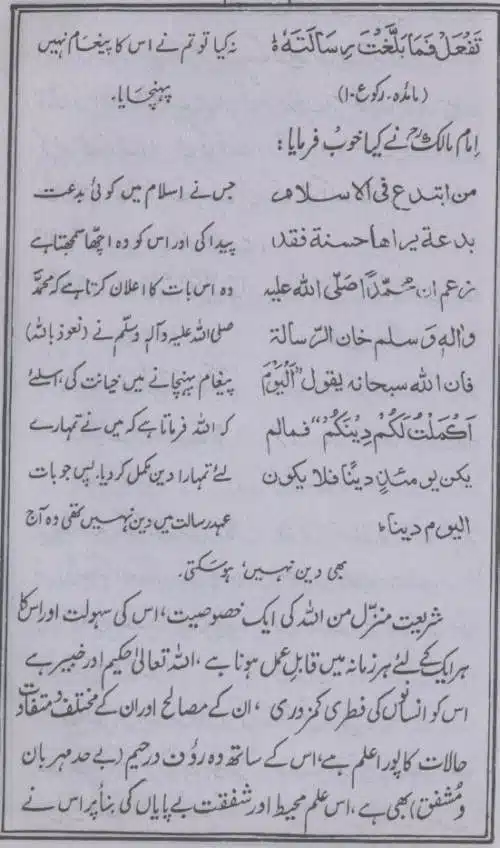 تَفْعَلْ فَمَا بَلَّغْتَ رِسَالَتَهٗ ؕ نہ کیا تو تم نے اس کا پیغام نہیں
(مائدہ۔ رکوع ۱۰) پہنچایا۔
امام مالکؒ نے کیا خوب فرمایا :
من ابتدع فی الاسلام جس نے اسلام میں کوئی بدعت
بدعة یراھا حسنة فقد پیدا کی اور اس کو وہ اچھا سمجھتا ہے
زعم ان محمّداً صلّی اللہ علیہ وہ اس بات کا اعلان کرتا ہے کہ محمدؐ
واٰلہٖ وسلم خان الرّسالة صلی اللہ علیہ وآلہٖ وسلّم نے (نعوذ باللہ)
فان اللہ سبحانہ یقول "اَلْیَوْمَ پیغام پہنچانے میں خیانت کی، اسلئے
اَکْمَلْتُ لَکُمْ دِیْنَکُمْ" فمالم کہ اللہ فرماتا ہے کہ میں نے تمہارے
یکن یومئذٍ دیناً فلا یکون لئے تمہارا دین مکمل کر دیا، پس جو بات
الیوم دینا، عہد رسالت میں دین نہیں تھی وہ آج
بھی دین نہیں ہوسکتی۔
شریعت منزّل من اللہ کی ایک خصوصیت، اس کی سہولت اور اس کا
ہر ایک کے لئے ہر زمانہ میں قابل عمل ہونا ہے، اللہ تعالیٰ حکیم اور خبیر ہے
اس کو انسانوں کی فطری کمزوری ، ان کے مصالح اور ان کے مختلف و متفاوت
حالات کا پورا علم ہے، اس کے ساتھ وہ رؤف و رحیم (بے حد مہربان
و مشفق) بھی ہے، اس علم محیط اور شفقت بے پایاں کی بنا پر اس نے